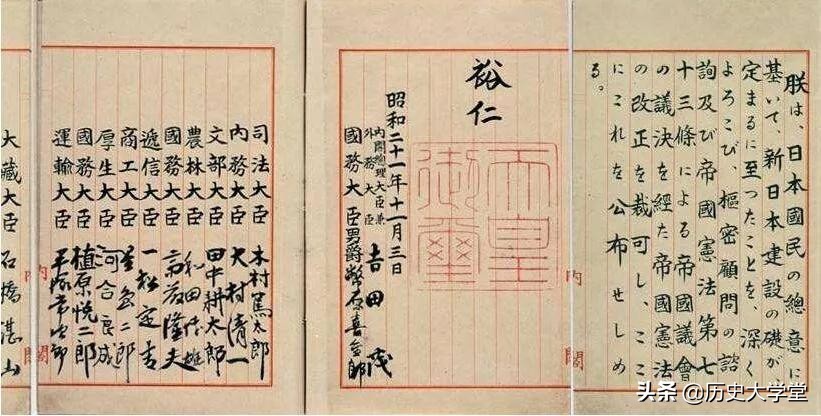 朕は、日本國民の總意に
基いて、新日本建設の礎が
定まるに至つたことを、深く
よろこび、樞密顧問の諮
詢及び帝國憲法第七
十三條による帝國議會
の議決を経た帝國憲法
の改正を裁可し、ここ
にこれを公布せしめ
る。
内閣
裕仁
天皇
御璽
昭和二十一年十一月三日
内閣總理大臣兼
外務大臣 吉田茂
國務大臣 男爵 幣原喜重郎
司法大臣 木村篤太郎
内務大臣 大村清一
文部大臣 田中耕太郎
農林大臣 和田博雄
國務大臣 斎藤隆夫
逓信大臣 一松定吉
商工大臣 星島二郎
厚生大臣 河合良成
國務大臣 植原悦二郎
運輸大臣 平塚常次郎
内閣
大藏大臣 石橋湛山
头条 @历史大学堂